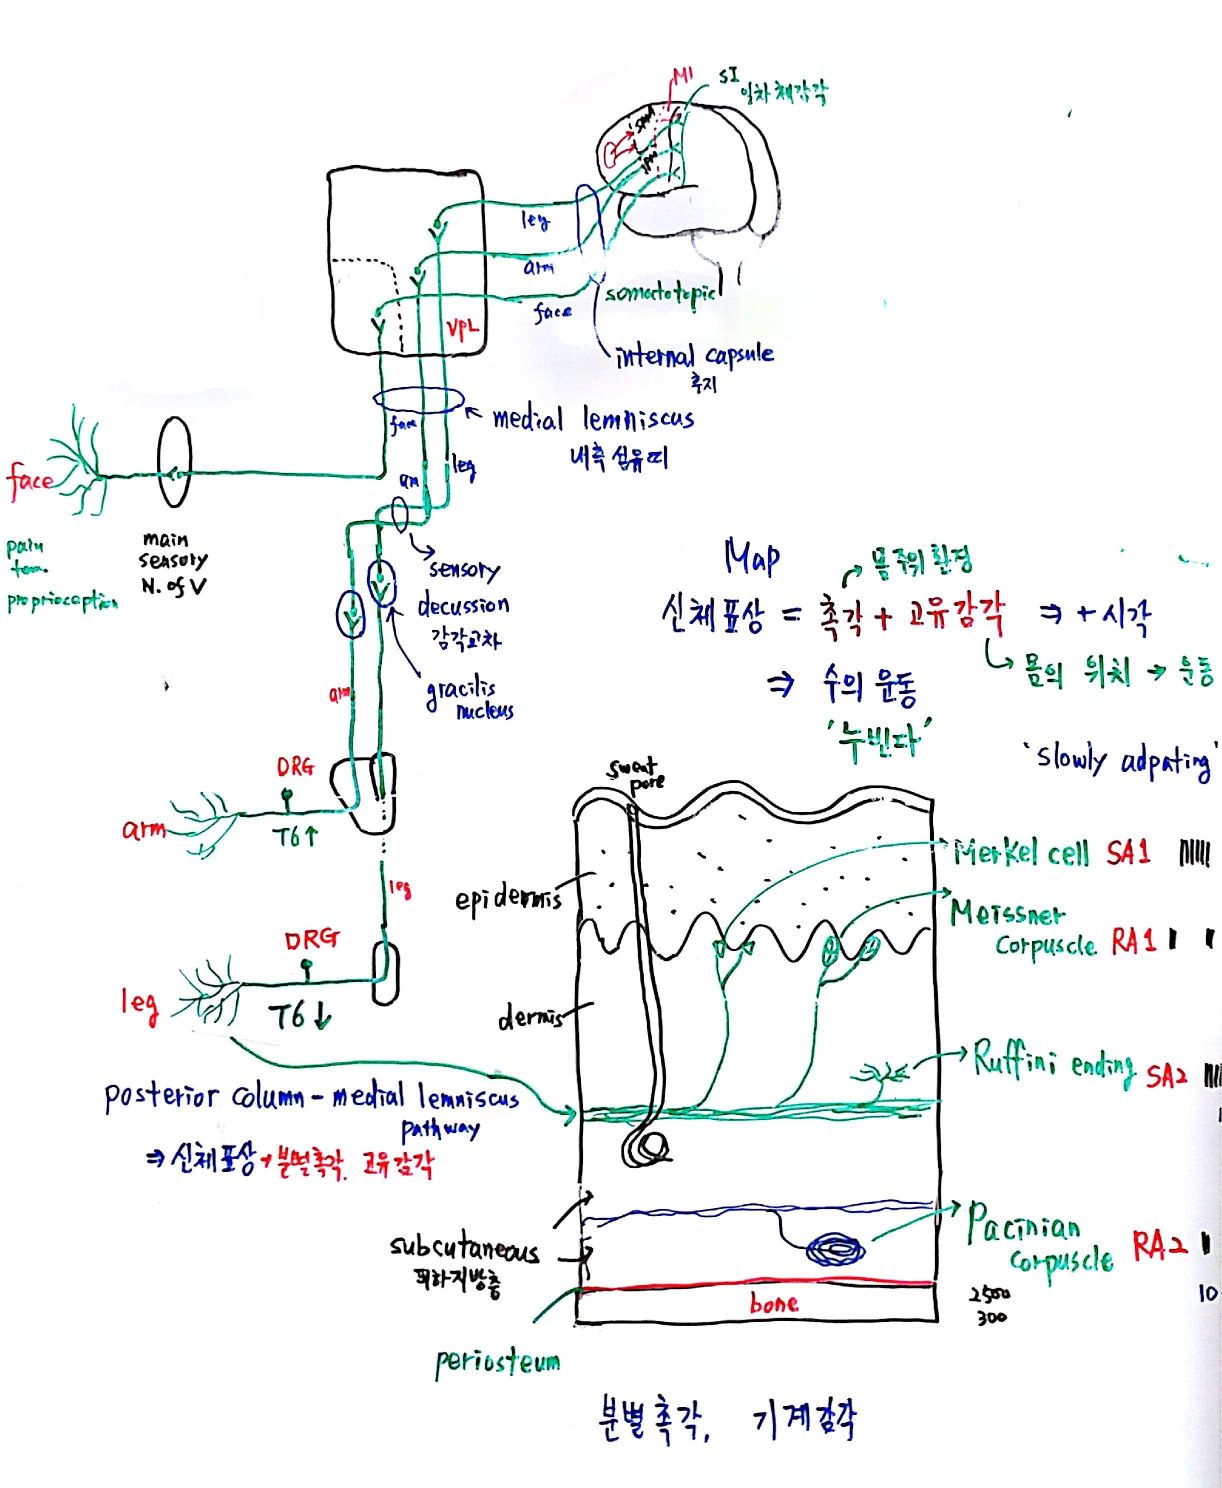 M1
SI
일차 체감각
leg
arm
face
VPL
somatotopic
internal capsule
후지
face
medial lemniscus
내측 섬유띠
leg
am
face
pain
tem.
proprioception
main
sensory
N. of V
sensory
decussion
감각교차
gracilis
nucleus
arm
Map
몸 주위 환경
신체표상 = 촉각 + 고유감각 ⇒ + 시각
몸의 위치 → 운동
⇒ 수의 운동
'누빈다'
'slowly adpating'
DRG
arm
T6↑
leg
DRG
leg
T6↓
sweat
pore
epidermis
dermis
Merkel cell SA1
Meissner
corpuscle RA1
Ruffini ending SA2
posterior column - medial lemniscus
pathway
⇒ 신체표상 → 분별촉각, 고유감각
subcutaneous
피하지방층
Pacinian
corpuscle RA2
bone
2500
300
10
periosteum
분별촉각, 기계감각